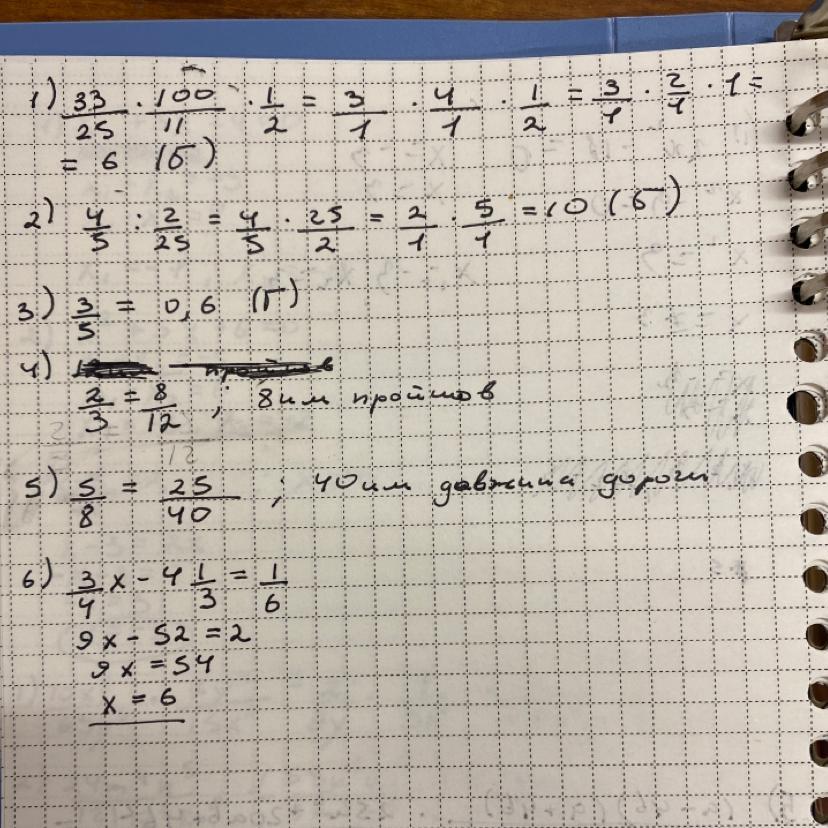 1) 33/25 · 100/11 · 1/2 = 3/1 · 4/1 · 1/2 = 3/1 · 2/1 · 1 =
= 6 (б)
2) 4/5 : 2/25 = 4/5 · 25/2 = 2/1 · 5/1 = 10 (б)
3) 3/5 = 0,6 (г)
4)
2/3 = 8/12 ; 8 км пройшов
5) 5/8 = 25/40 ; 40 км довжина дороги
6) 3/4 x - 4 1/3 = 1/6
9x - 52 = 2
9x = 54
x = 6